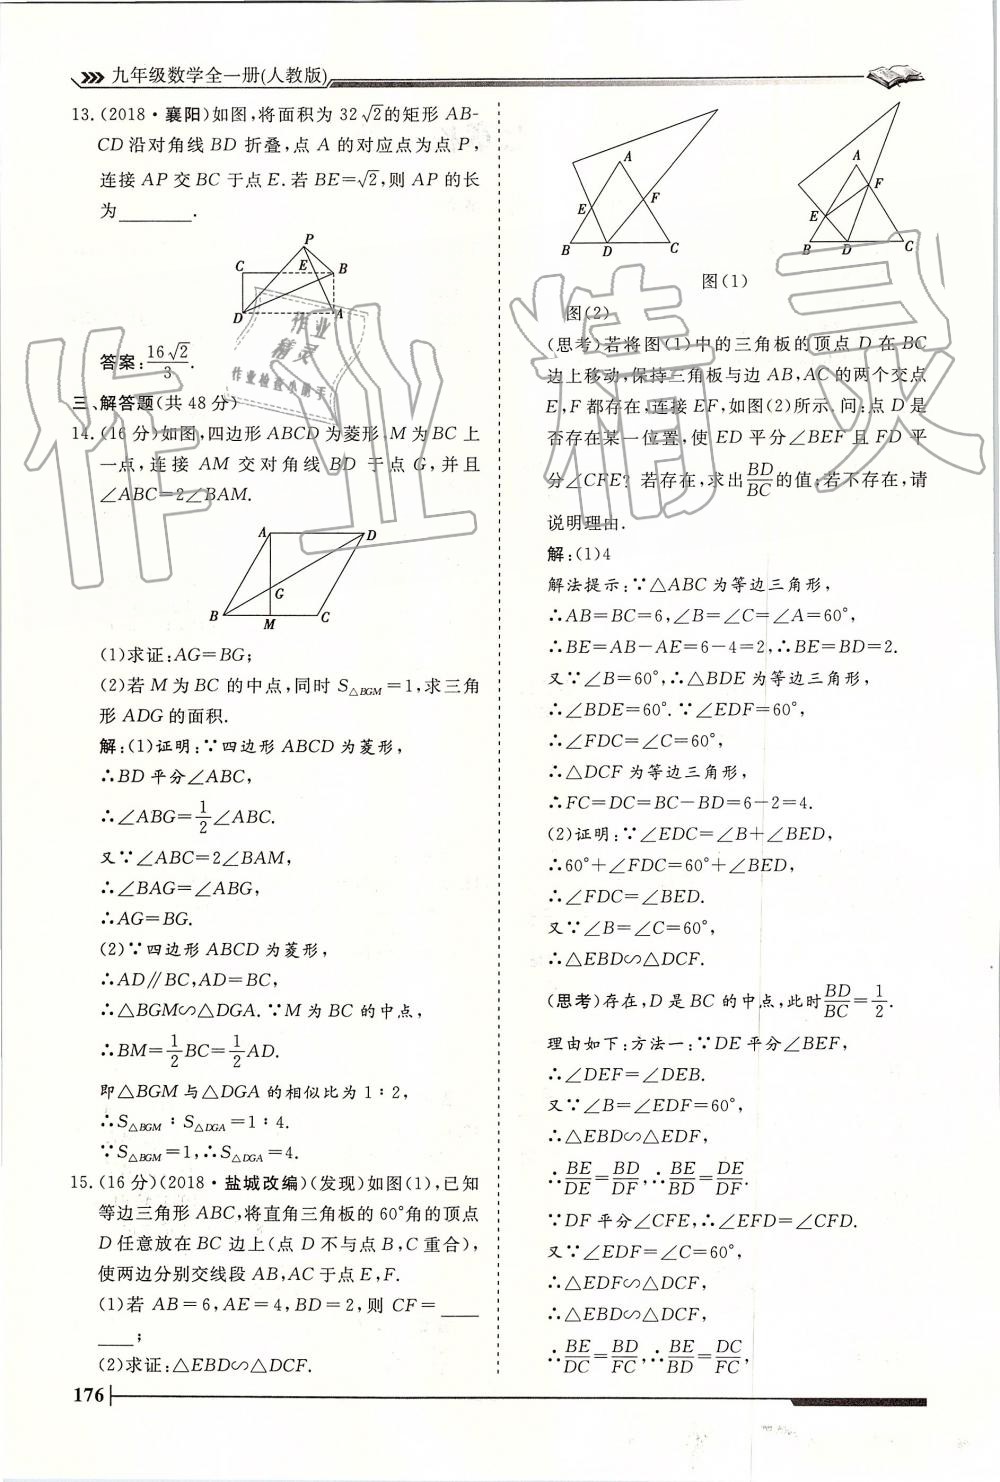 九年级数学全一册(人教版)
13.(2018·襄阳)如图,将面积为32√2的矩形AB-
CD沿对角线BD折叠,点A的对应点为点P,
连接AP交BC于点E.若BE=√2,则AP的长
为________.
P
C E B
D A
答案:16√2/3.
三、解答题(共48分)
14.(16分)如图,四边形ABCD为菱形,M为BC上
一点,连接AM交对角线BD于点G,并且
∠ABC=2∠BAM.
A D
G
B M C
(1)求证:AG=BG;
(2)若M为BC的中点,同时S△BGM=1,求三角
形ADG的面积.
解:(1)证明:∵四边形ABCD为菱形,
∴BD平分∠ABC,
∴∠ABG=1/2∠ABC.
又∵∠ABC=2∠BAM,
∴∠BAG=∠ABG,
∴AG=BG.
(2)∵四边形ABCD为菱形,
∴AD∥BC,AD=BC,
∴△BGM∽△DGA.∵M为BC的中点,
∴BM=1/2BC=1/2AD.
即△BGM与△DGA的相似比为1∶2,
∴S△BGM∶S△DGA=1∶4.
∵S△BGM=1,∴S△DGA=4.
15.(16分)(2018·盐城改编)(发现)如图(1),已知
等边三角形ABC,将直角三角板的60°角的顶点
D任意放在BC边上(点D不与点B,C重合),
使两边分别交线段AB,AC于点E,F.
(1)若AB=6,AE=4,BD=2,则CF=____
____;
(2)求证:△EBD∽△DCF.
A
E F
B D C
A
F
E
B D C
图(1)
图(2)
(思考)若将图(1)中的三角板的顶点D在BC
边上移动,保持三角板与边AB,AC的两个交点
E,F都存在,连接EF,如图(2)所示.问:点D是
否存在某一位置,使ED平分∠BEF且FD平
分∠CFE?若存在,求出BD/BC的值;若不存在,请
说明理由.
解:(1)4
解法提示:∵△ABC为等边三角形,
∴AB=BC=6,∠B=∠C=∠A=60°,
∴BE=AB-AE=6-4=2,∴BE=BD=2.
又∵∠B=60°,∴△BDE为等边三角形,
∴∠BDE=60°.∵∠EDF=60°,
∴∠FDC=∠C=60°,
∴△DCF为等边三角形,
∴FC=DC=BC-BD=6-2=4.
(2)证明:∵∠EDC=∠B+∠BED,
∴60°+∠FDC=60°+∠BED,
∴∠FDC=∠BED.
又∵∠B=∠C=60°,
∴△EBD∽△DCF.
(思考)存在,D是BC的中点,此时BD/BC=1/2.
理由如下:方法一:∵DE平分∠BEF,
∴∠DEF=∠DEB.
又∵∠B=∠EDF=60°,
∴△EBD∽△EDF,
∴BE/DE=BD/DF,∴BE/BD=DE/DF.
∵DF平分∠CFE,∴∠EFD=∠CFD.
又∵∠EDF=∠C=60°,
∴△EDF∽△DCF,
∴△EBD∽△DCF,
∴BE/DC=BD/FC,∴BE/BD=DC/FC,
176
作业精灵
作业
精灵
作业检查小助手